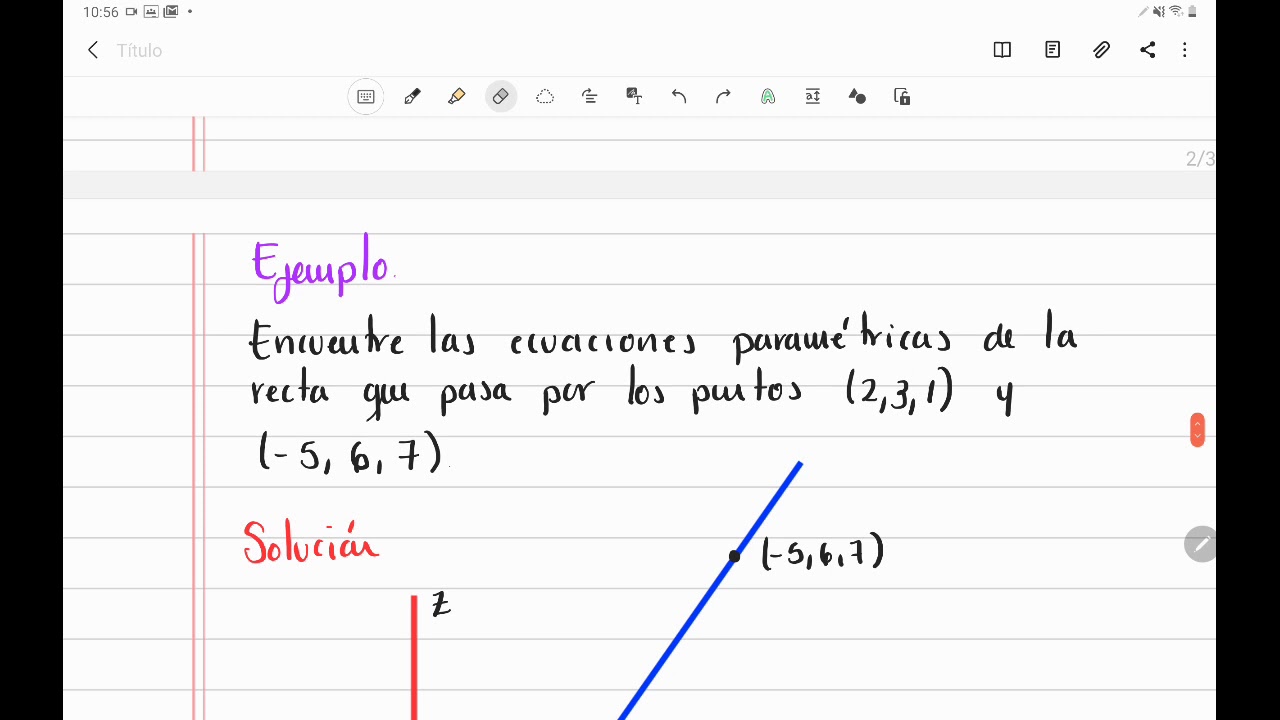 10:56
Título
2/3
Ejemplo.
Encuentre las ecuaciones paramétricas de la
recta que pasa por los puntos (2,3,1) y
(-5, 6, 7).
Solución
(-5,6,7)
z